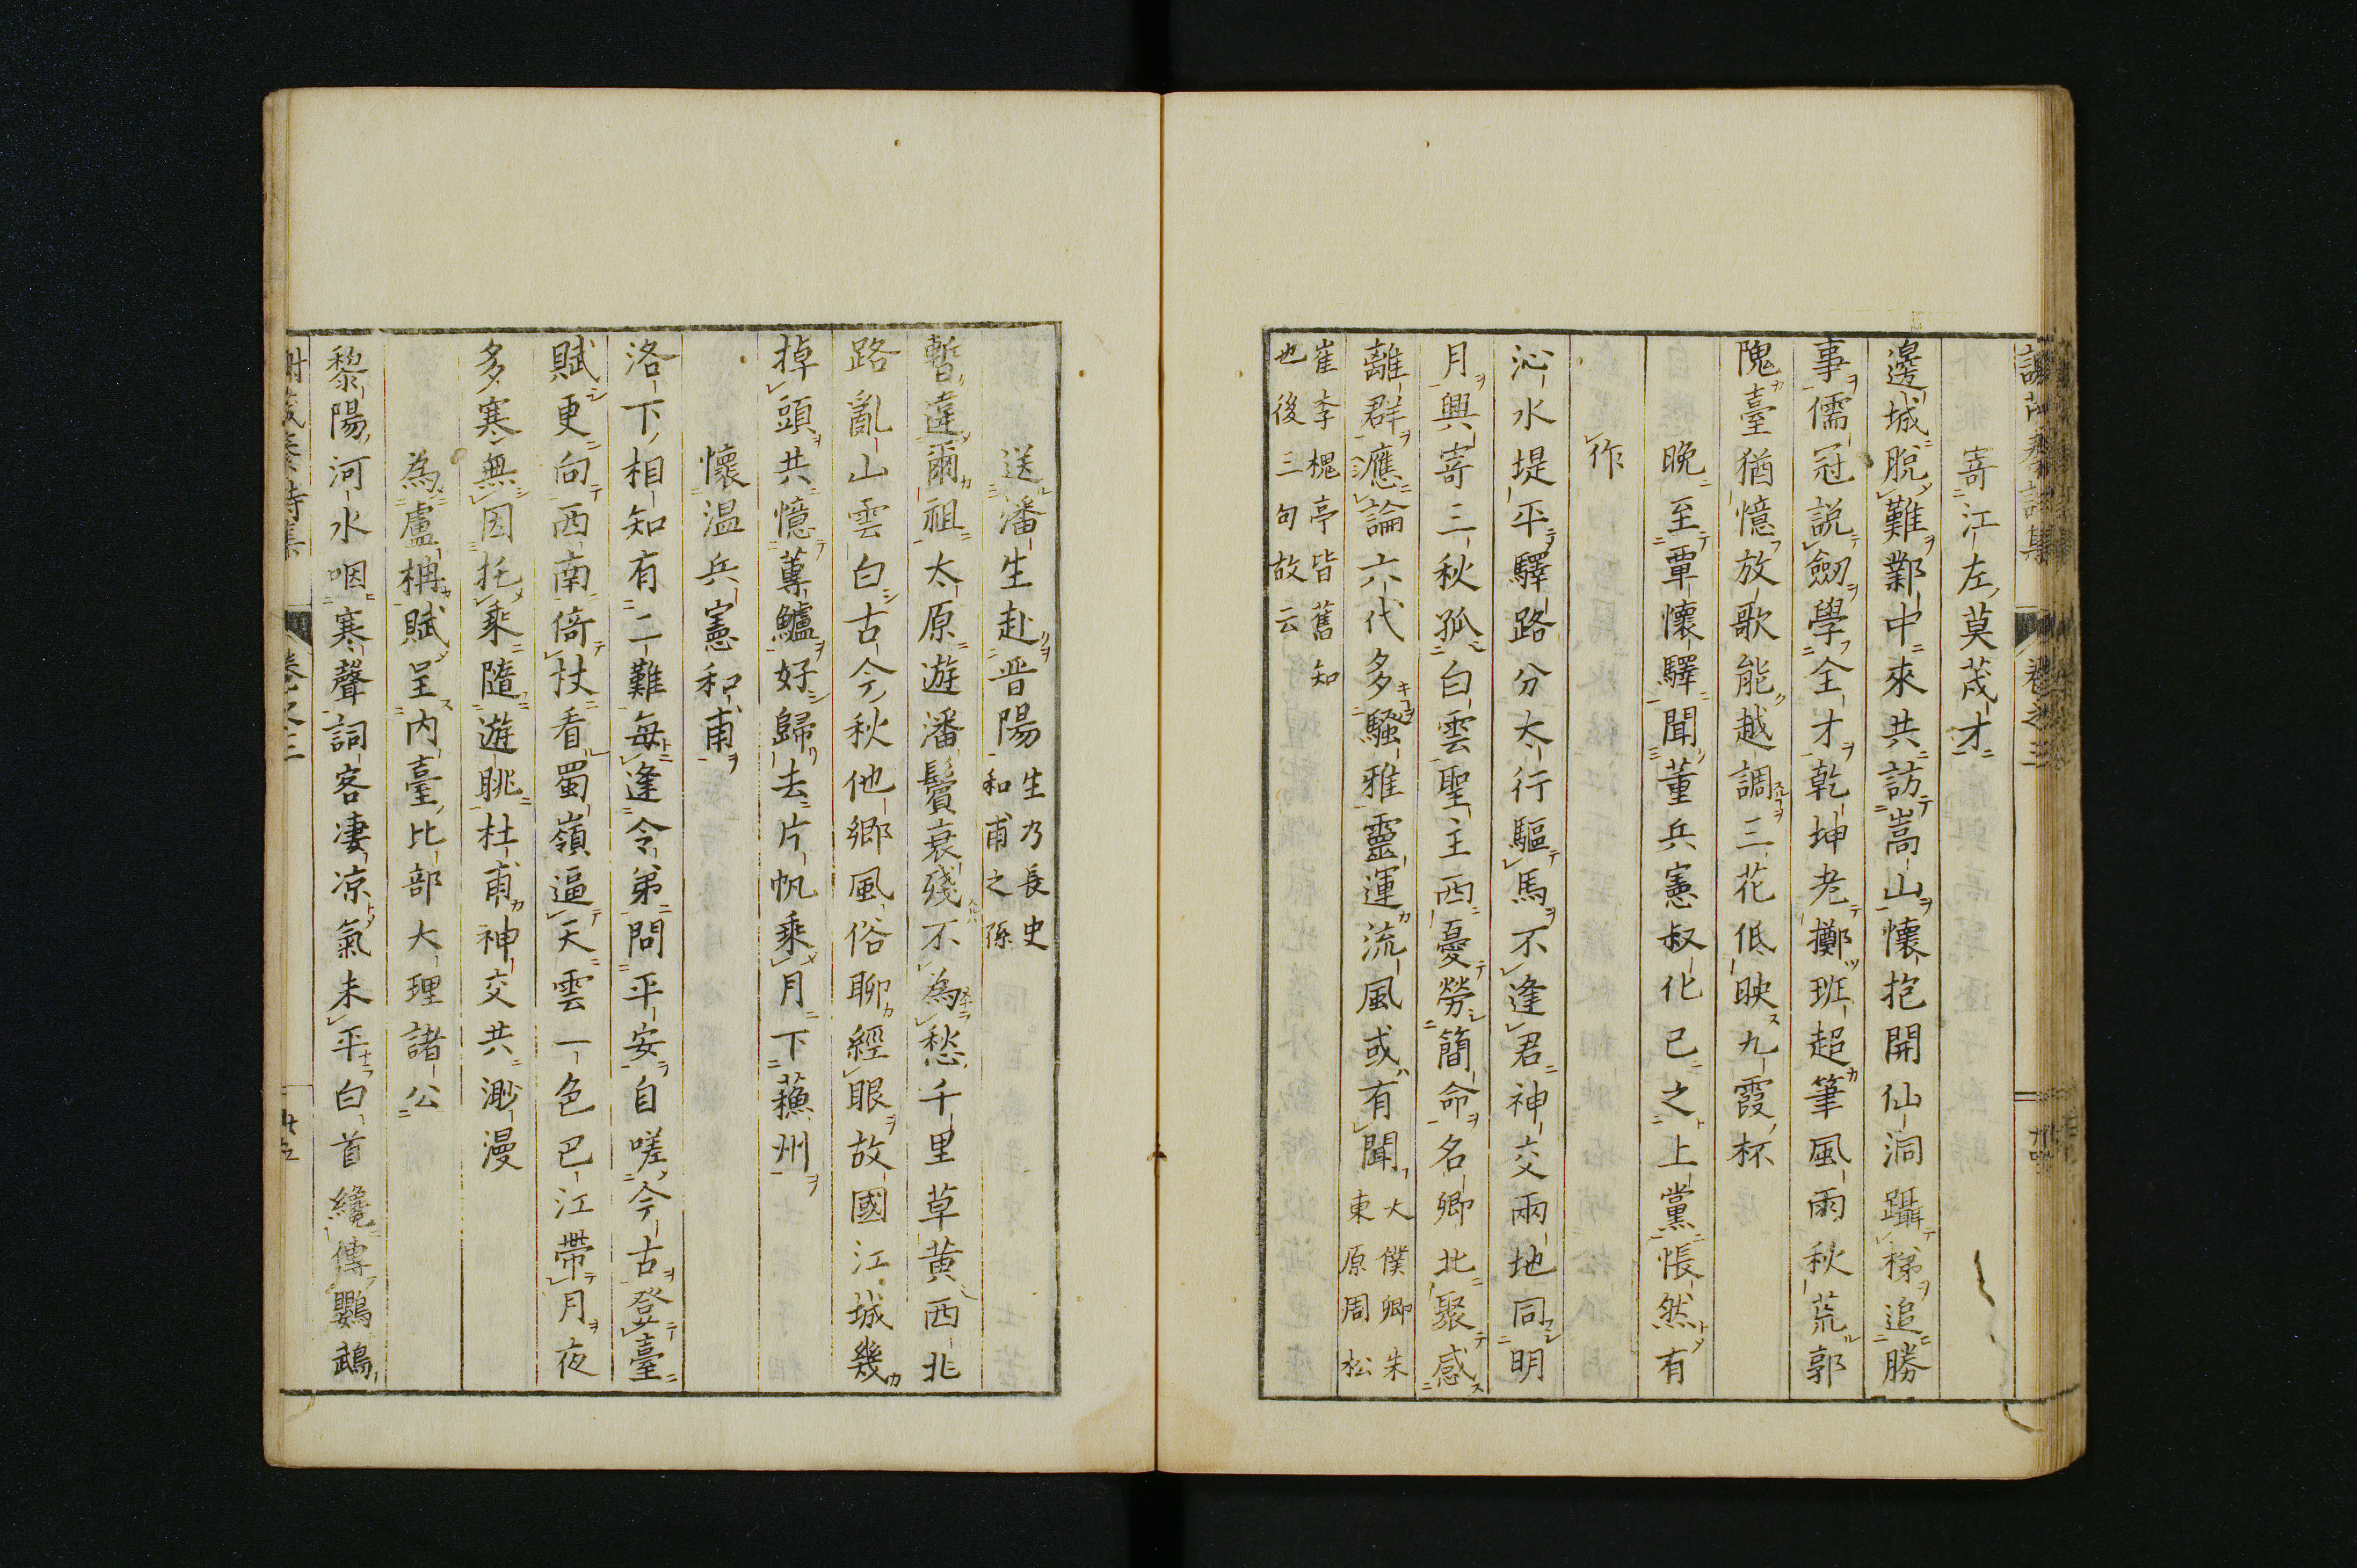 寄江左莫茂才
邊城脫難鄴中來共訪嵩山懷抱開仙洞躡梯追勝
事儒冠説劒學全才乾坤老擲班超筆風雨秋荒郭
隗臺猶憶放歌能越調三花低映九霞杯
晩至覃懷驛聞董兵憲叔化已之上黨悵然有
作
沁水堤平驛路分太行驅馬不逢君神交兩地同明
月興寄三秋孤白雲聖主西憂勞簡命名卿北聚感
離群應論六代多騷雅靈運流風或有聞大僕卿朱東原周松
崔李槐亭皆舊知也後三句故云
送潘生赴晋陽生乃長史和甫之孫
暫違爾祖太原遊潘鬢衰殘不為愁千里草黄西北
路亂山雲白古今秋他鄉風俗聊經眼故國江城幾
掉頭共憶蓴鱸好歸去片帆乘月下蘓州
懷温兵憲和甫
洛下相知有二難每逢令弟問平安自嗟今古登臺
賦更向西南倚杖看蜀嶺逼天雲一色巴江帶月夜
多寒無因托乘隨遊眺杜甫神交共渺漫
為盧柟賦呈内臺比部大理諸公
黎陽河水咽寒聲詞客凄凉氣未平白首纔傳鸚鵡